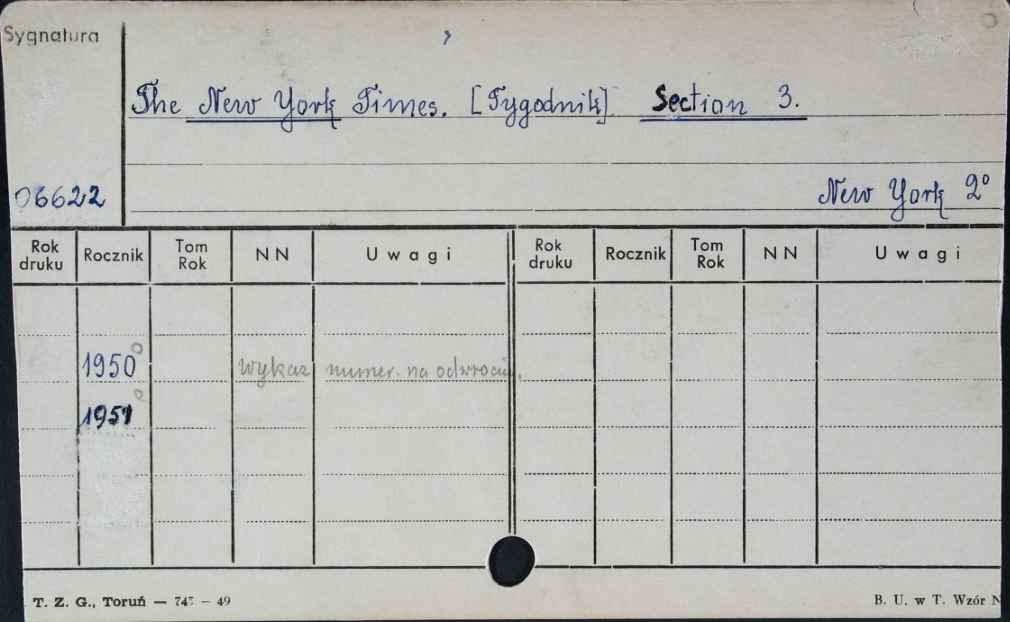 Sygnatura
The New York Times. [Tygodnik]. Section 3.
06622
New York 2°
Rok druku Rocznik Tom Rok NN Uwagi Rok druku Rocznik Tom Rok NN Uwagi
1950° wykaz numer. na odwrociu.
1951°
T. Z. G., Toruń — 747 — 49
B. U. w T. Wzór N